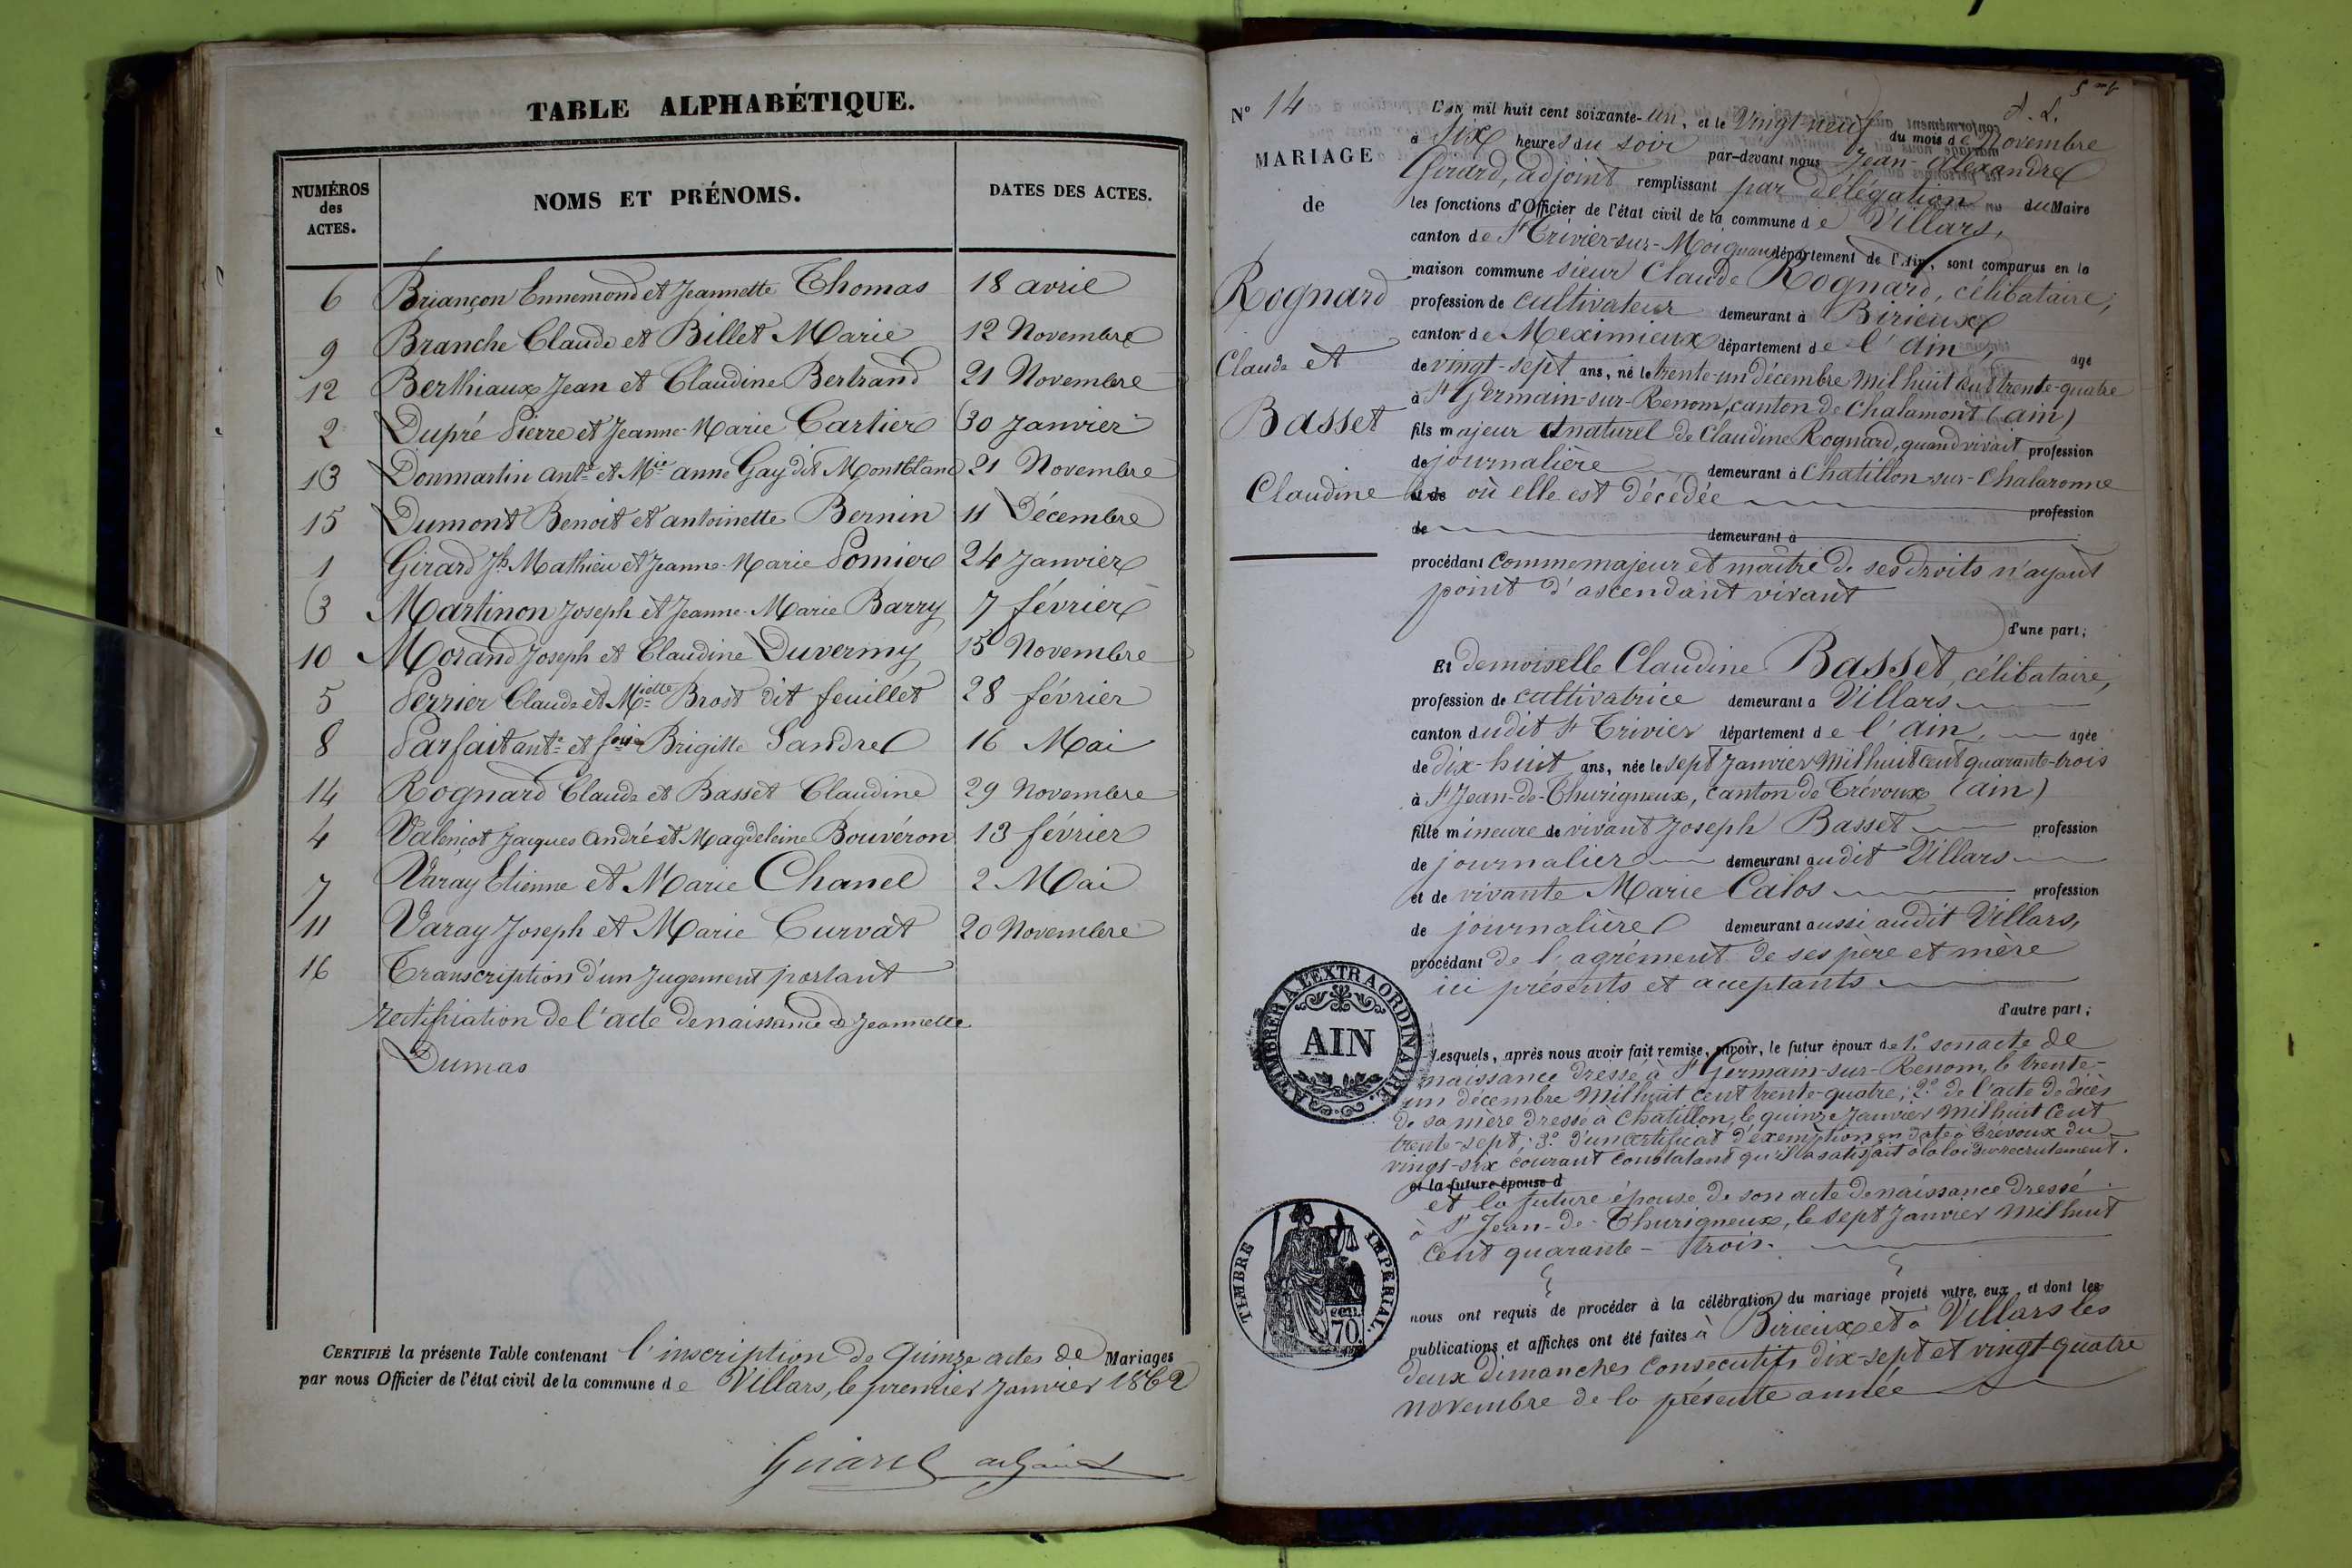 TABLE ALPHABÉTIQUE.
NUMÉROS des ACTES.
NOMS ET PRÉNOMS.
DATES DES ACTES.
6 Briançon Ennemond et Jeannette Thomas 18 avril
9 Branche Claude et Billet Marie 12 Novembre
12 Berthiaux Jean et Claudine Bertrand 21 Novembre
2 Dupré Pierre et Jeanne-Marie Cartier 30 Janvier
13 Donmartin Ant.e et M.ie anne Gay dit Montblanc 21 Novembre
15 Dumont Benoit et antoinette Bernin 11 Décembre
1 Girard Jh Mathieu et Jeanne-Marie Pomier 24 Janvier
3 Martinon Joseph et Jeanne-Marie Barry 7 février
10 Morand Joseph et Claudine Duvermy 15 Novembre
5 Perrier Claude et M.iette Brost dit feuillet 28 février
8 Parfait ant.e et f.oise Brigitte Pandrel 16 Mai
14 Rognard Claude et Basset Claudine 29 Novembre
4 Valençot Jacques André et Magdeleine Bouvéron 13 février
7 Varay Etienne et Marie Chanel 2 Mai
11 Varay Joseph et Marie Curvat 20 Novembre
16 Transcription d'un Jugement portant
rectification de l'acte de naissance de Jeannette
Dumas
CERTIFIÉ la présente Table contenant l'inscription de Quinze actes de Mariages
par nous Officier de l'état civil de la commune de Villars, le premier Janvier 1862
Girard adjoint
N° 14
MARIAGE
de
Rognard
Claude et
Basset
Claudine
L'AN mil huit cent soixante-un, et le Vingt neuf du mois de Novembre
à Six heures du soir par-devant nous Jean-Alexandre
Girard, adjoint remplissant par délégation du Maire
les fonctions d'Officier de l'état civil de la commune de Villars,
canton de St Trivier-sur-Moignans département de l'Ain, sont comparus en la
maison commune sieur Claude Rognard, célibataire,
profession de cultivateur demeurant à Birieux
canton de Meximieux département de l'Ain, agé
de vingt-sept ans, né le trente-un décembre mil huit cent trente-quatre
à St Germain-sur-Renom, canton de Chalamont (ain)
fils majeur et naturel de Claudine Rognard, quand vivait profession
de journalière demeurant à Chatillon-sur-Chalaronne
et de où elle est décédée profession
de demeurant à
procédant comme majeur et maître de ses droits n'ayant
point d'ascendant vivant
d'une part;
Et demoiselle Claudine Basset, célibataire,
profession de cultivatrice demeurant à Villars
canton dudit St Trivier département de l'Ain, agée
de dix-huit ans, née le sept Janvier mil huit cent quarante-trois
à St Jean-de-Thurigneux, canton de Trévoux (ain)
fille mineure de vivant Joseph Basset profession
de journalier demeurant audit Villars
et de vivante Marie Calos profession
de journalière demeurant aussi audit Villars,
procédant de l'agrément de ses père et mère
ici présents et acceptants
d'autre part;
Lesquels, après nous avoir fait remise, savoir, le futur époux de 1.° son acte de
naissance dressé à St Germain-sur-Renom, le trente-
un décembre mil huit cent trente-quatre; 2.° de l'acte de décès
de sa mère dressé à Chatillon, le quinze Janvier mil huit cent
trente-sept; 3.° d'un certificat d'exemption en date à Trévoux du
vingt-six courant constatant qu'il a satisfait à la loi du recrutement.
et la future épouse d
et la future épouse de son acte de naissance dressé
à St Jean-de-Thurigneux, le sept Janvier mil huit
cent quarante-trois.
nous ont requis de procéder à la célébration du mariage projeté entre eux, et dont les
publications et affiches ont été faites à Birieux et à Villars les
deux dimanches consécutifs dix-sept et vingt-quatre
novembre de la présente année
A TIMBRER A L'EXTRAORDINAIRE
AIN
TIMBRE IMPERIAL
cen.
70.